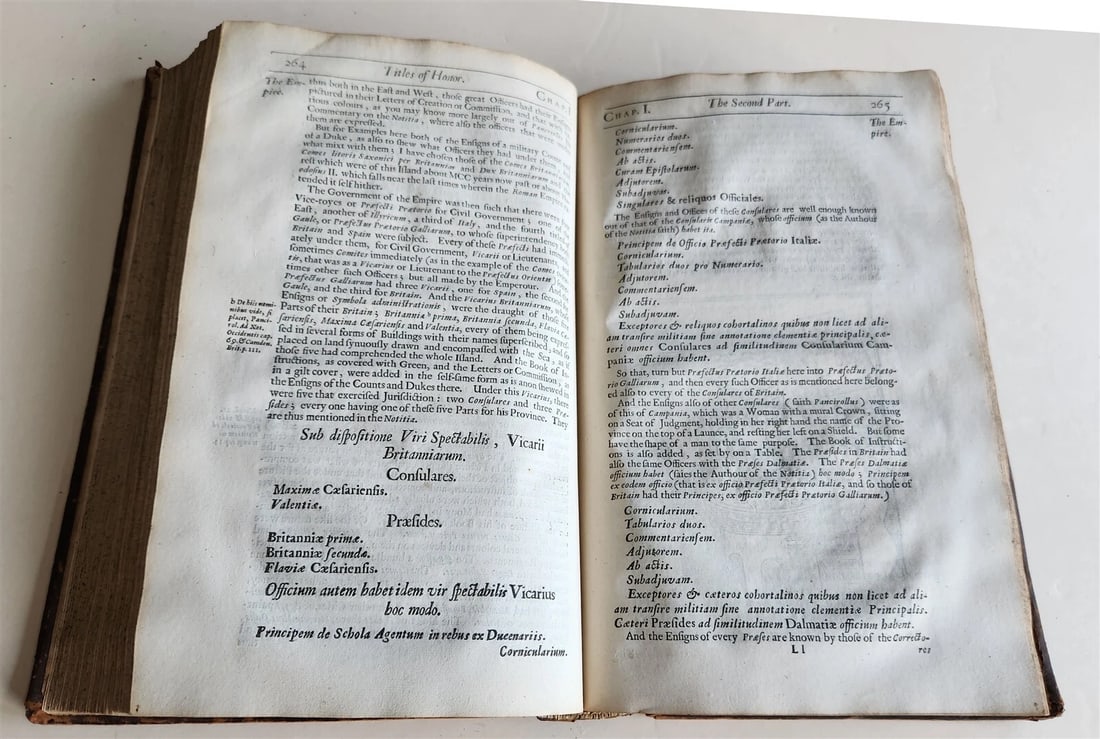 264
Titles of Honor.
CHAP. I.
The Em-
pire.
thus both in the East and West, those great Officers had their
pictured in their Letters of Creation or Commission, and that with
rious colours, as you may know more largely out of Pancirolus
Commentary on the Notitia, where also the officers that were
them are expressed.
But for Examples here both of the Ensigns of a military Count
of a Duke, as also to shew what Officers they had under them
what mixt with them; I have chosen those of the Comes Britanniæ
Comes litoris Saxonici per Britanniam and Dux Britanniarum
rest which were of this Island about MCC years now past or
odosius II. which falls near the last times wherein the Roman Empire
tended it self hither.
The Government of the Empire was then such that there were
Vice-royes or Præfecti Prætorio for Civil Government; one of
East, another of Illyricum, a third of Italy, and the fourth
Gaule, or Præfectus Prætorio Galliarum, to whose superintendency
Britain and Spain were subject. Every of these Præfects had
ately under them, for Civil Government, Vicarii or Lieutenants, and
sometimes Comites immediately (as in the example of the Comes
tis, that was as a Vicarius or Lieutenant to the Præfectus Orientis
times other such Officers; but all made by the Emperour. And the
Præfectus Galliarum had three Vicarii, one for Spain, the second for
Gaule, and the third for Britain. And the Vicarius Britanniarum, whose
Ensigns or Symbola administrationis, were the draught of those five
Parts of their Britain; Britannia b prima, Britannia secunda, Flavia Cæ-
sariensis, Maxima Cæsariensis and Valentia, every of them being expres-
sed in several forms of Buildings with their names superscribed, and so
placed on land sinuously drawn and encompassed with the Sea, as if
those five had comprehended the whole Island. And the Book of In-
structions, as covered with Green, and the Letters or Commission, as
in a gilt cover, were added in the self-same form as is anon shewed in
the Ensigns of the Counts and Dukes there. Under this Vicarius, there
were five that exercised Jurisdiction: two Consulares and three Præ-
sides; every one having one of these five Parts for his Province. They
are thus mentioned in the Notitia.
b De hiis nomi-
nibus vide, si
placet, Panci-
rol. Ad Not.
Occidentis cap.
69. & Camden.
Brit. p. 111.
Sub dispositione Viri Spectabilis, Vicarii
Britanniarum.
Consulares.
Maximæ Cæsariensis.
Valentiæ.
Præsides.
Britanniæ primæ.
Britanniæ secundæ.
Flaviæ Cæsariensis.
Officium autem habet idem vir spectabilis Vicarius
hoc modo.
Principem de Schola Agentum in rebus ex Ducenariis.
Cornicularium.
CHAP. I.
The Second Part.
265
The Em-
pire.
Cornicularium.
Numerarios duos.
Commentariensem.
Ab actis.
Curam Epistolarum.
Adjutorem.
Subadjuvas.
Singulares & reliquos Officiales.
The Ensigns and Offices of these Consulares are well enough known
out of that of the Consularis Campaniæ, whose officium (as the Authour
of the Notitia saith) habet ita.
Principem de Officio Præfecti Prætorio Italiæ.
Cornicularium.
Tabularios duos pro Numerario.
Adjutorem.
Commentariensem.
Ab actis.
Subadjuvam.
Exceptores & reliquos cohortalinos quibus non licet ad ali-
am transire militiam sine annotatione clementiæ principalis, cæ-
teri omnes Consulares ad similitudinem Consularium Cam-
paniæ officium habent.
So that, turn but Præfectus Prætorio Italiæ here into Præfectus Præto-
rio Galliarum, and then every such Officer as is mentioned here belong-
ed also to every of the Consulares of Britain.
And the Ensigns also of other Consulares (saith Pancirollus) were as
of this of Campania, which was a Woman with a mural Crown, sitting
on a Seat of Judgment, holding in her right hand the name of the Pro-
vince on the top of a Launce, and resting her left on a Shield. But some
have the shape of a man to the same purpose. The Book of Instructi-
ons is also added, as set by on a Table. The Præsides in Britain had
also the same Officers with the Præses Dalmatiæ. The Præses Dalmatiæ
officium habet (saies the Authour of the Notitia) hoc modo; Principem
ex eodem officio (that is ex officio Præfecti Prætorio Italiæ, and so those of
Britain had their Principes, ex officio Præfecti Prætorio Galliarum.)
Cornicularium.
Tabularios duos.
Commentariensem.
Adjutorem.
Ab actis.
Subadjuvam.
Exceptores & cæteros cohortalinos quibus non licet ad ali-
am transire militiam sine annotatione clementiæ Principalis.
Cæteri Præsides ad similitudinem Dalmatiæ officium habent.
And the Ensigns of every Præses are known by those of the Correcto-
Ll
res